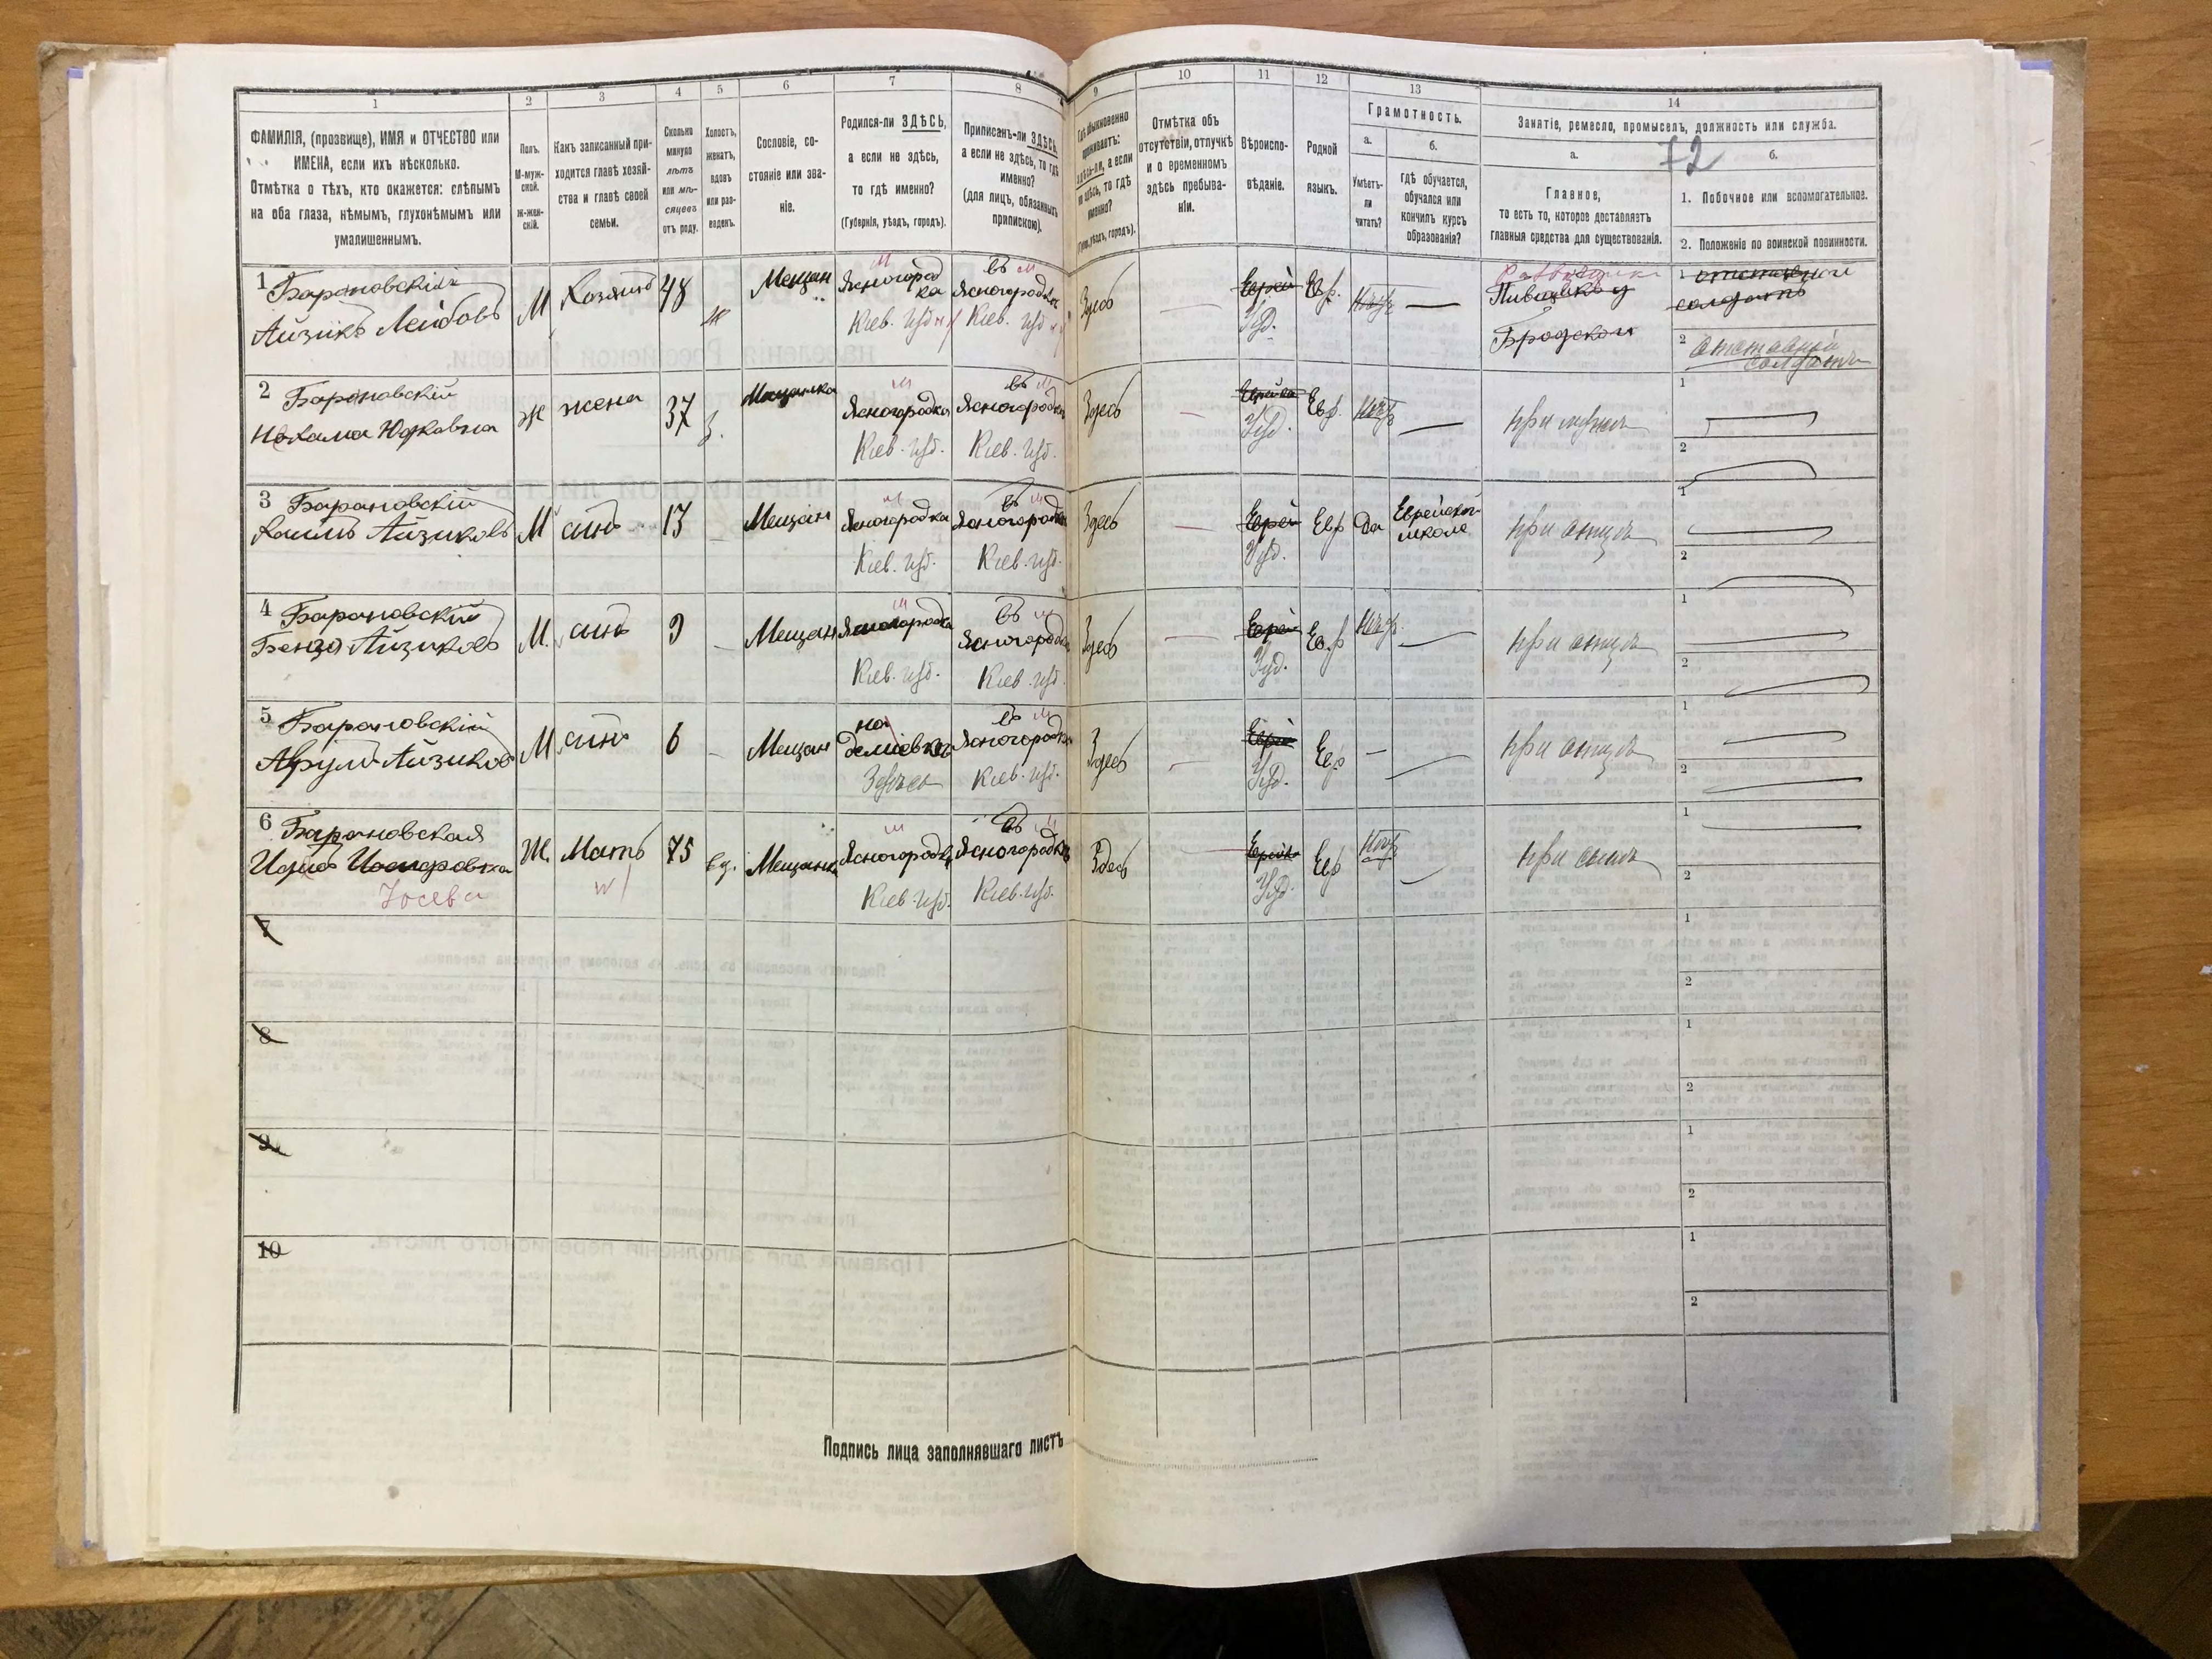 1
2
3
4
5
6
7
8
9
10
11
12
13
14
ФАМИЛІЯ, (прозвище), ИМЯ и ОТЧЕСТВО или
ИМЕНА, если ихъ нѣсколько.
Отмѣтка о тѣхъ, кто окажется: слѣпымъ
на оба глаза, нѣмымъ, глухонѣмымъ или
умалишеннымъ.
Полъ.
М-муж-
ской.
Ж-жен-
скій.
Какъ записанный при-
ходится главѣ хозяй-
ства и главѣ своей
семьи.
Сколько
минуло
лѣтъ
или мѣ-
сяцевъ
отъ роду.
Холостъ,
женатъ,
вдовъ
или раз-
веденъ.
Сословіе, со-
стояніе или зва-
ніе.
Родился-ли ЗДѢСЬ,
а если не здѣсь,
то гдѣ именно?
(Губернія, уѣздъ, городъ).
Приписанъ-ли ЗДѢСЬ,
а если не здѣсь, то гдѣ
именно?
(для лицъ, обязанныхъ
припискою).
Гдѣ обыкновенно
проживаетъ:
здѣсь-ли, а если
не здѣсь, то гдѣ
именно?
(Губ., уѣздъ, городъ).
Отмѣтка объ
отсутствіи, отлучкѣ
и о временномъ
здѣсь пребыва-
ніи.
Вѣроиспо-
вѣданіе.
Родной
языкъ.
Грамотность.
а.
Умѣетъ-
ли
читать?
б.
гдѣ обучается,
обучался или
кончилъ курсъ
образованія?
Занятіе, ремесло, промыселъ, должность или служба.
72
а.
Главное,
то есть то, которое доставляетъ
главныя средства для существованія.
б.
1. Побочное или вспомогательное.
2. Положеніе по воинской повинности.
1 Барановскій
Айзикъ Лейбовъ
М
Хозяинъ
48
ж
Мещан
Ясногород
ка
Кіев. губ
въ м
Ясногородка
Кіев. губ
Здесь
Еврей
Іуд.
Евр.
Негр
Пивщикъ у
Бродского
1 отставной
солдатъ
2 Отставной
солдатъ
2 Барановскій
Нехама Юдковна
ж
жена
37
з.
Мещанка
м
Ясногородка
Кіев. губ.
въ м
Ясногородка
Кіев. губ.
Здесь
Іуд.
Евр.
Негр
при мужѣ
1
2
3 Барановскій
Хаимъ Айзиковъ
М
сынъ
13
Мещан
м
Ясногородка
Кіев. губ.
въ м
Ясногородка
Кіев. губ.
Здесь
Еврей
Іуд.
Евр
Да
Еврейской
школе
при отцѣ
1
2
4 Барановскій
Бенцо Айзиковъ
М.
сынъ
9
Мещан
м
Ясногородка
Кіев. губ.
въ м
Ясногородка
Кіев. губ.
Здесь
Еврей
Іуд.
Евр
Негр.
при отцѣ
1
2
5 Барановскій
Айзиковъ
М
сынъ
6
Мещан
на
Деміевкѣ
Здѣсь
въ м
Ясногородка
Кіев. губ.
Здесь
Еврей
Іуд.
Евр
при отцѣ
1
2
6 Барановская
Іосева
Ж.
Мать
75
вд.
Мещанка
м
Ясногородка
Кіев. губ.
въ м
Ясногородка
Кіев. губ.
Здесь
Іуд.
Евр
Негр
при сынѣ
1
2
7
1
2
8
1
2
9
1
2
10
1
2
Подпись лица заполнявшаго листъ